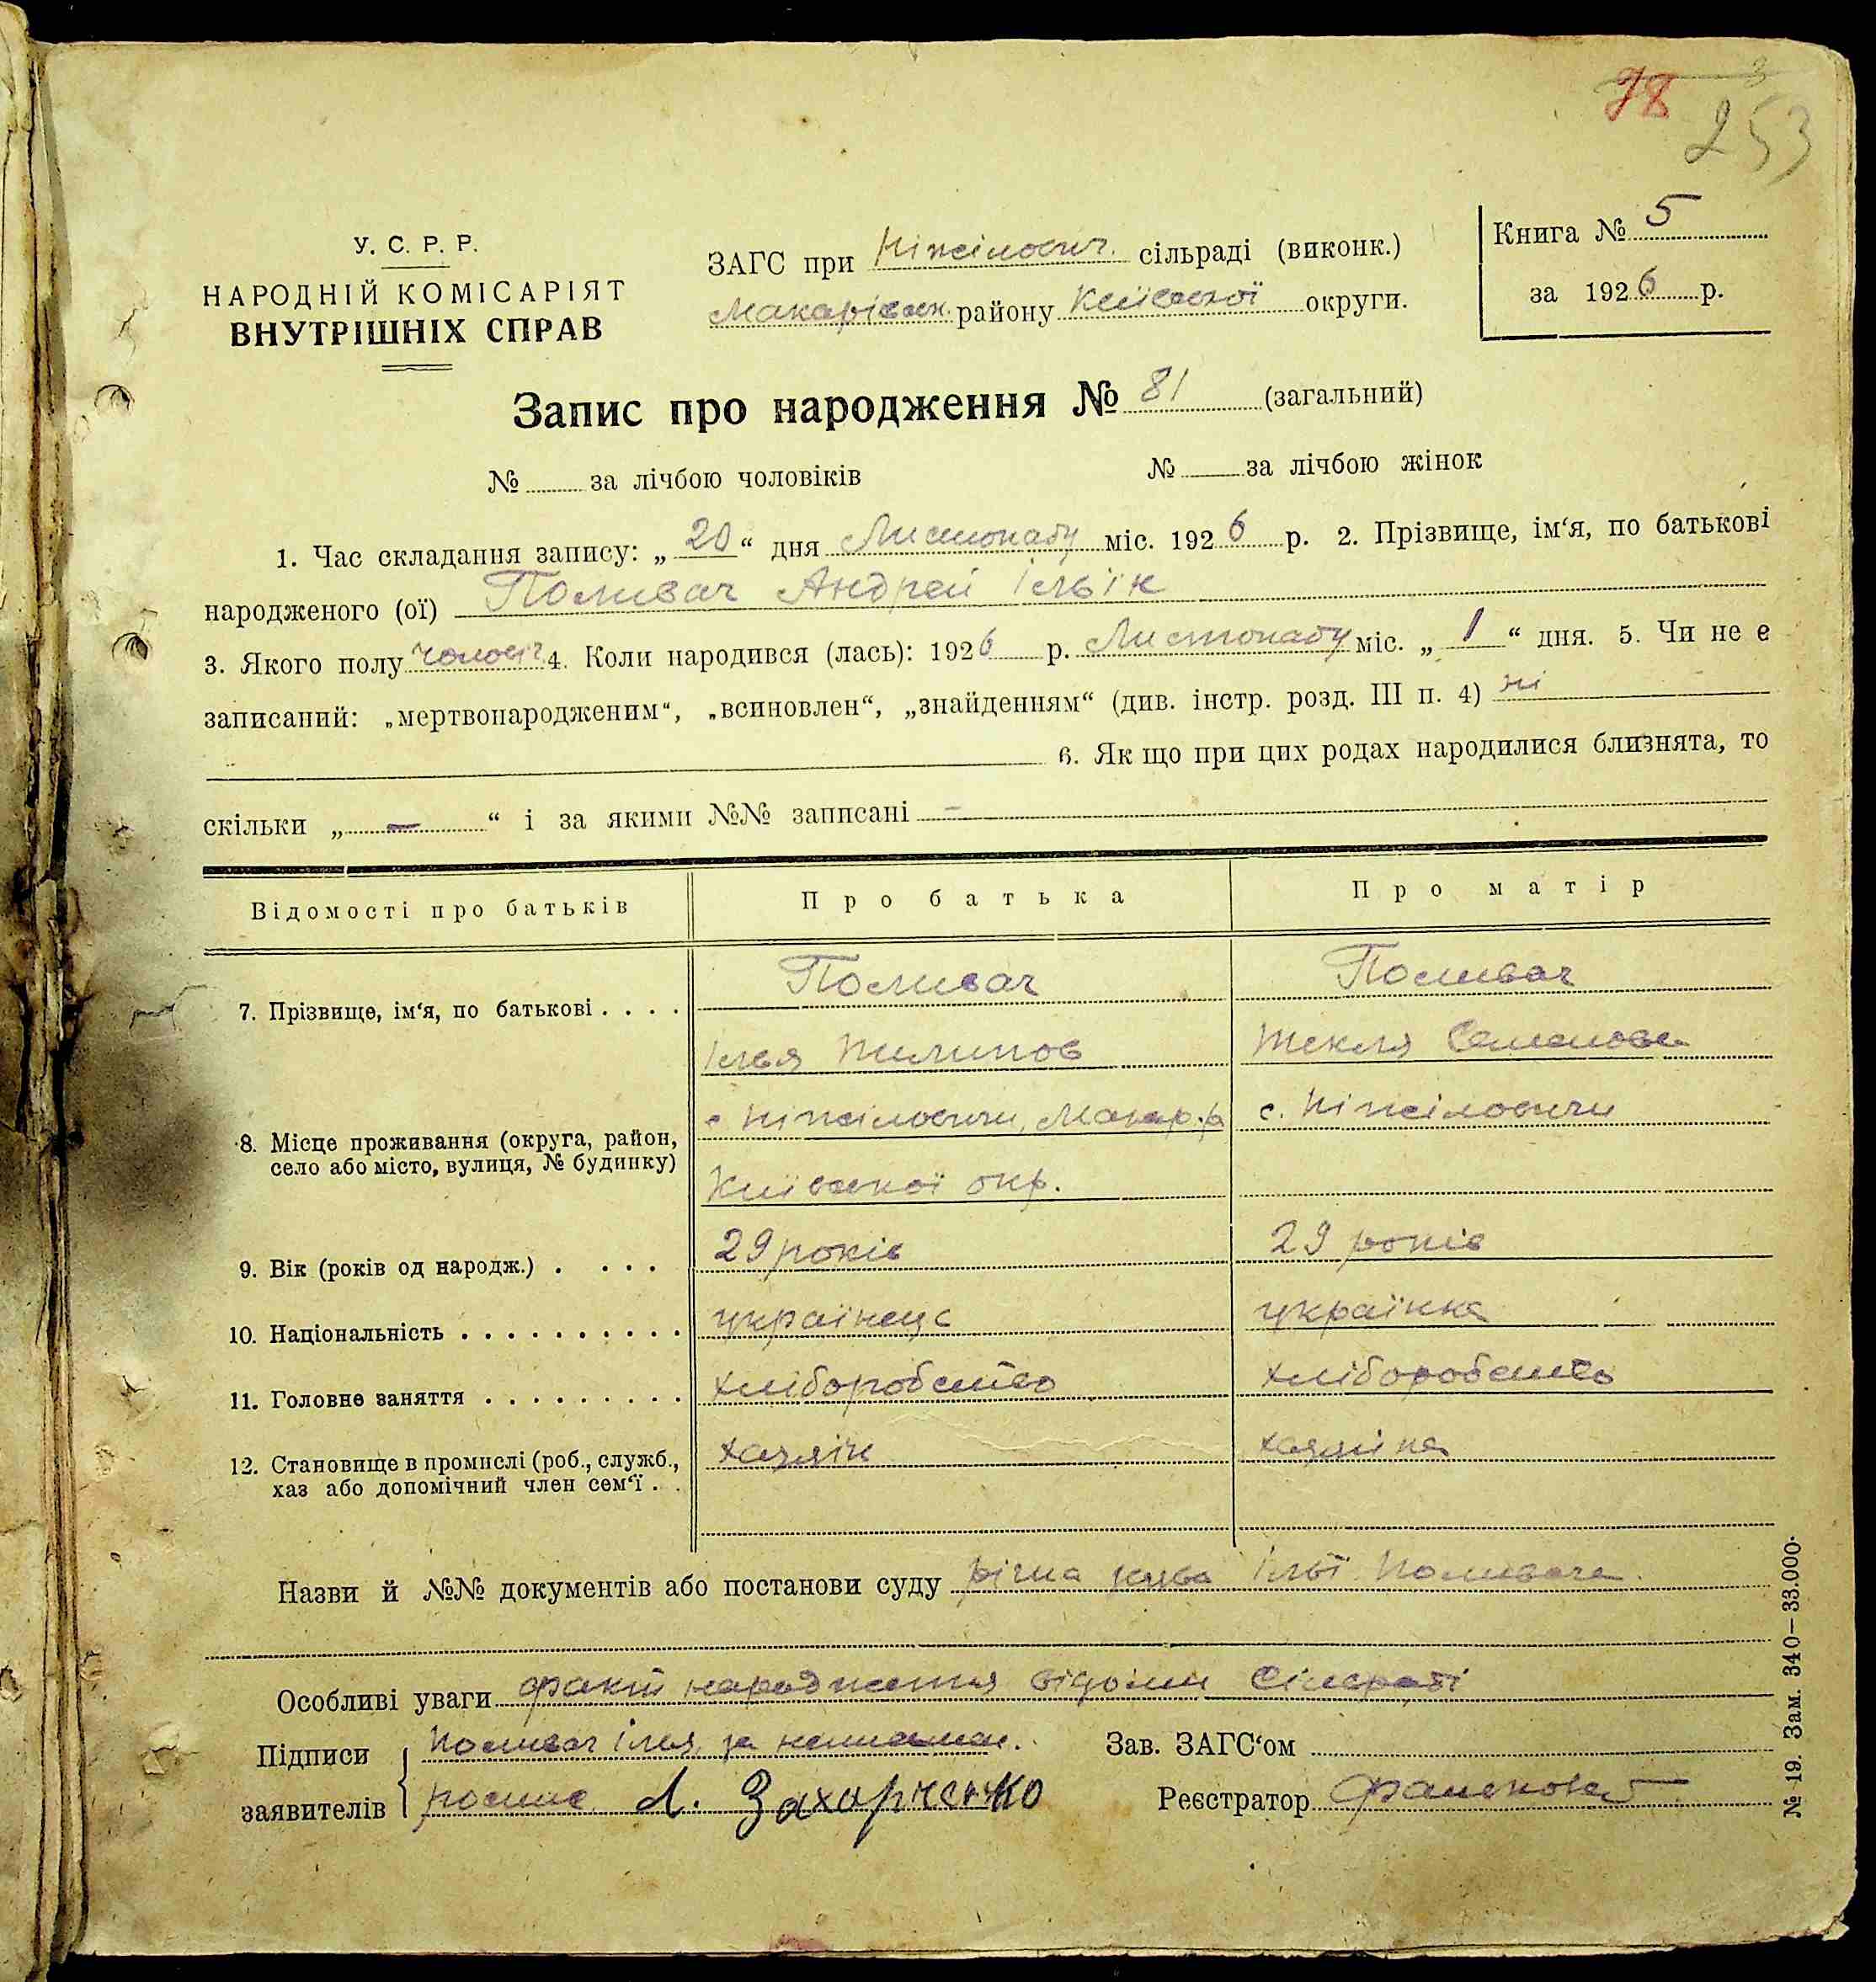 78
253
У. С. Р. Р.
НАРОДНІЙ КОМІСАРІЯТ
ВНУТРІШНІХ СПРАВ
ЗАГС при Ніжілович. сільраді (виконк.)
Макарівськ. району Київської округи.
Книга № 5
за 1926 р.
Запис про народження № 81 (загальний)
№ за лічбою чоловіків № за лічбою жінок
1. Час складання запису: „20“ дня Листопаду міс. 1926 р. 2. Прізвище, ім‘я, по батькові
народженого (ої) Поливач Андрей Ільїн
3. Якого полу чоловіч. 4. Коли народився (лась): 1926 р. Листопаду міс. „1“ дня. 5. Чи не е
записаний: „мертвонародженим“, „всиновлен“, „знайденням“ (див. інстр. розд. III п. 4) ні
6. Як що при цих родах народилися близнята, то
скільки „ — “ і за якими №№ записані —
Відомості про батьків Про батька Про матір
7. Прізвище, ім‘я, по батькові . . . . Поливач Поливач
Ілья Пилипов Текля Семенова
8. Місце проживання (округа, район, с. Ніжіловичи, Макар. р. с. Ніжіловичи
село або місто, вулиця, № будинку)
Київської окр.
9. Вік (років од народж.) . . . . 29 років 29 років
10. Національність . . . . . . . . . . українець українка
11. Головне заняття . . . . . . . . . хліборобство хліборобство
12. Становище в промислі (роб., служб., хазяїн хазяйка
хаз або допомічний член сем‘ї . .
Назви й №№ документів або постанови суду Ільї Поливача
Особливі уваги факт народження відомий Сільраді
Підписи Поливач Ілья, за неписьмен.
заявителів росписс. Л. Захарченко
Зав. ЗАГС‘ом
Реєстратор
№ 19. Зам. 340—33.000.